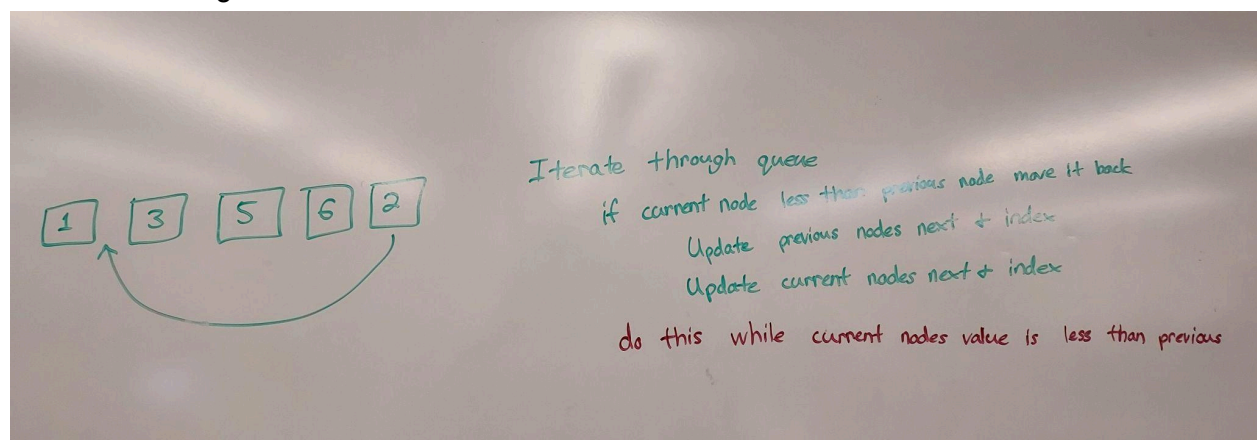 1 3 5 6 2
Iterate through queue
if current node less than previous node move it back
Update previous nodes next & index
Update current nodes next & index
do this while current nodes value is less than previous